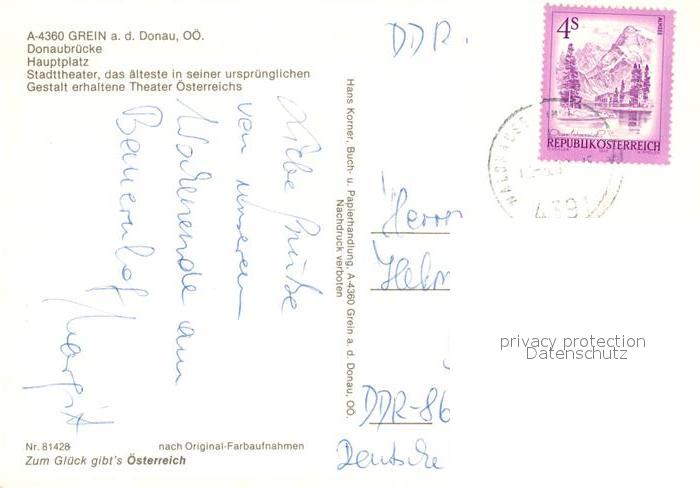 A-4360 GREIN a. d. Donau, OÖ.
Donaubrücke
Hauptplatz
Stadttheater, das älteste in seiner ursprünglichen
Gestalt erhaltene Theater Österreichs
Liebe Grüße
von unserem
Wochenende am
Bauernhof
Margit
Nr. 81428
nach Original-Farbaufnahmen
Zum Glück gibt's Österreich
Hans Korner, Buch- u. Papierhandlung, A-4360 Grein a. d. Donau, OÖ.
Nachdruck verboten
DDR.
4S
ALMSEE
REPUBLIK ÖSTERREICH
Herrn
DDR-86
Deutsche
privacy protection
Datenschutz